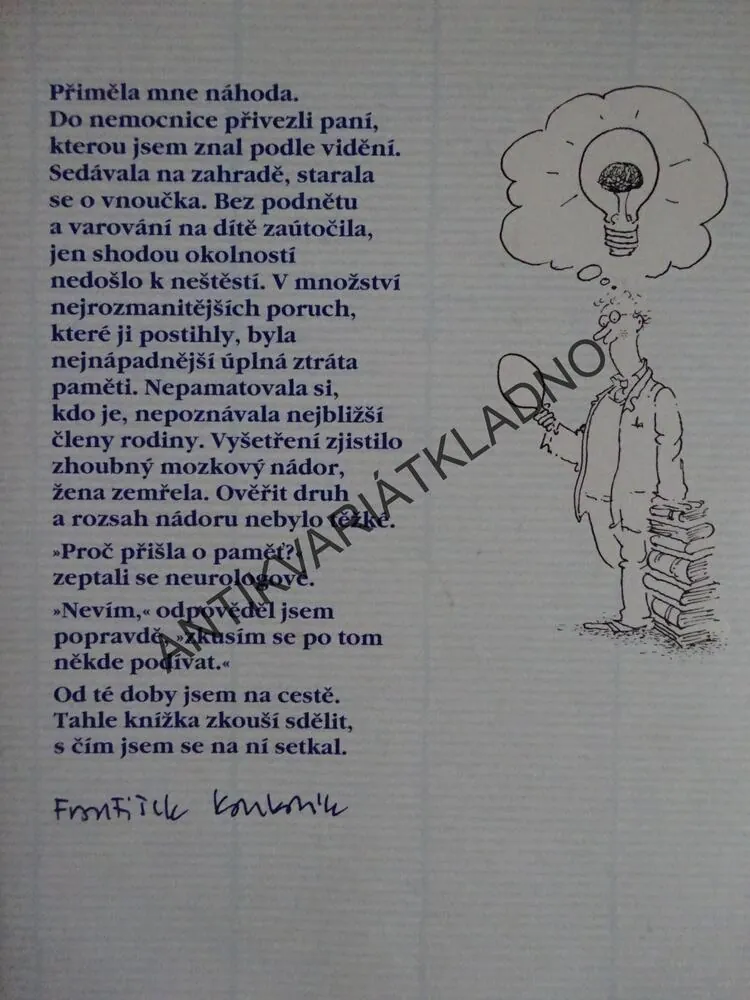 Přiměla mne náhoda.
Do nemocnice přivezli paní,
kterou jsem znal podle vidění.
Sedávala na zahradě, starala
se o vnoučka. Bez podnětu
a varování na dítě zaútočila,
jen shodou okolností
nedošlo k neštěstí. V množství
nejrozmanitějších poruch,
které ji postihly, byla
nejnápadnější úplná ztráta
paměti. Nepamatovala si,
kdo je, nepoznávala nejbližší
členy rodiny. Vyšetření zjistilo
zhoubný mozkový nádor,
žena zemřela. Ověřit druh
a rozsah nádoru nebylo těžké.
»Proč přišla o paměť?«
zeptali se neurologové.
»Nevím,« odpověděl jsem
popravdě, »zkusím se po tom
někde podívat.«
Od té doby jsem na cestě.
Tahle knížka zkouší sdělit,
s čím jsem se na ní setkal.
František Koukolík
ANTIKVARIÁTKLADNO